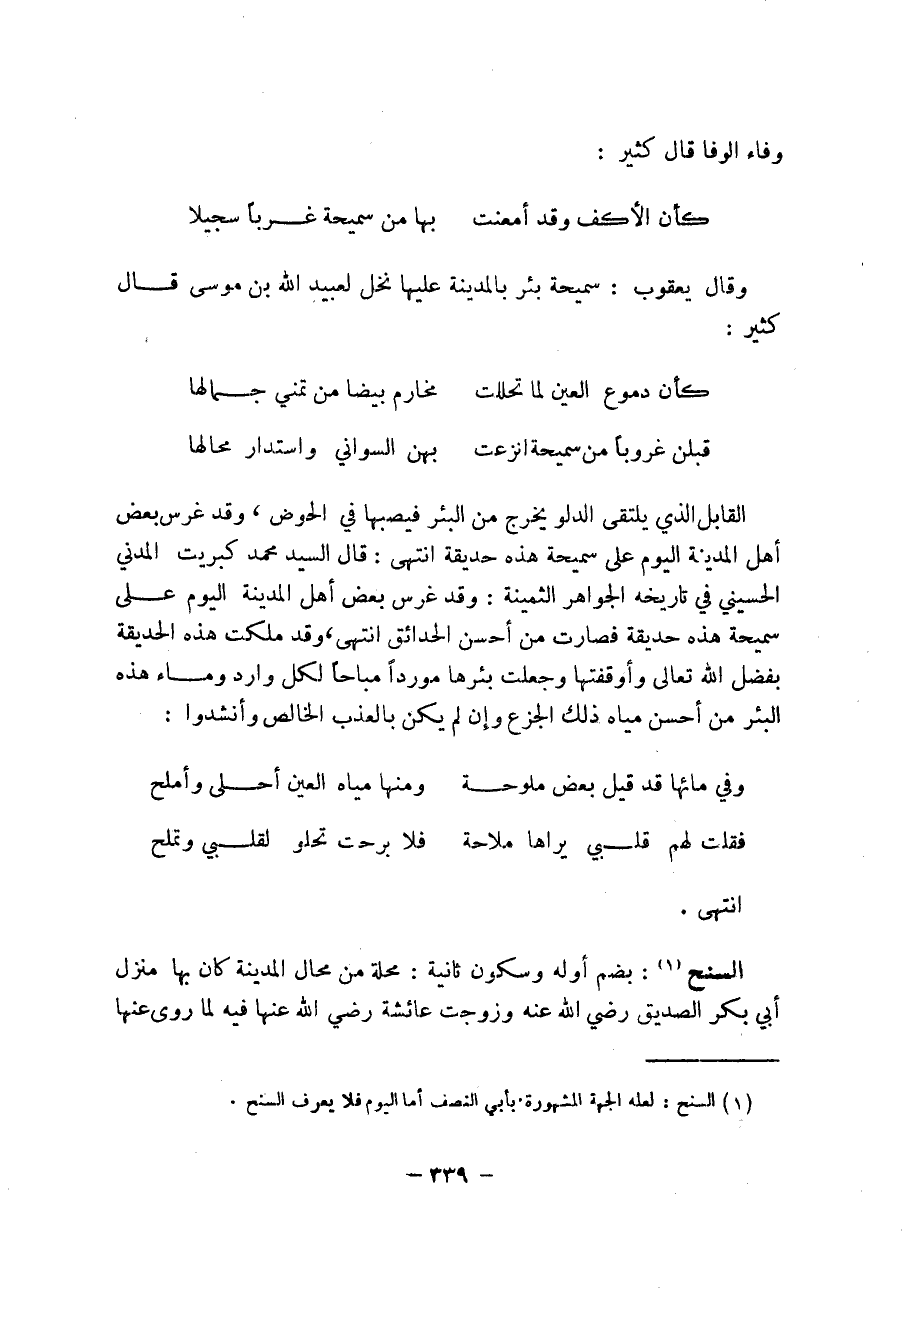 وفاء الوفا قال كثير :
كأن الأكف وقد أمعنت بها من سميحة غرباً سجيلا
وقال يعقوب : سميحة بئر بالمدينة عليها نخل لعبيد الله بن موسى قال
كثير :
كأن دموع العين لما تحللت مخارم بيضا من تمني جمالها
قبلن غروباً من سميحة انزعت بهن السواني واستدار محالها
القابل الذي يلتقى الدلو يخرج من البئر فيصبها في الحوض ، وقد غرس بعض
أهل المدينة اليوم على سميحة هذه حديقة انتهى : قال السيد محمد كبريت المدني
الحسيني في تاريخه الجواهر الثمينة : وقد غرس بعض أهل المدينة اليوم على
سميحة هذه حديقة فصارت من أحسن الحدائق انتهى، وقد ملكت هذه الحديقة
بفضل الله تعالى وأوقفتها وجعلت بئرها مورداً مباحاً لكل وارد وماء هذه
البئر من أحسن مياه ذلك الجزع وإن لم يكن بالعذب الخالص وأنشدوا :
وفي مائها قد قيل بعض ملوحة ومنها مياه العين أحلى وأملح
فقلت لهم قلبي يراها ملاحة فلا برحت تحلو لقلبي وتملح
انتهى .
السنح (١) : بضم أوله وسكون ثانية : محلة من محال المدينة كان بها منزل
أبي بكر الصديق رضي الله عنه وزوجت عائشة رضي الله عنها فيه لما روى عنها
(١) السنح : لعله الجهة المشهورة بأبي النصف أما اليوم فلا يعرف السنح .
- ٣٣٩ -